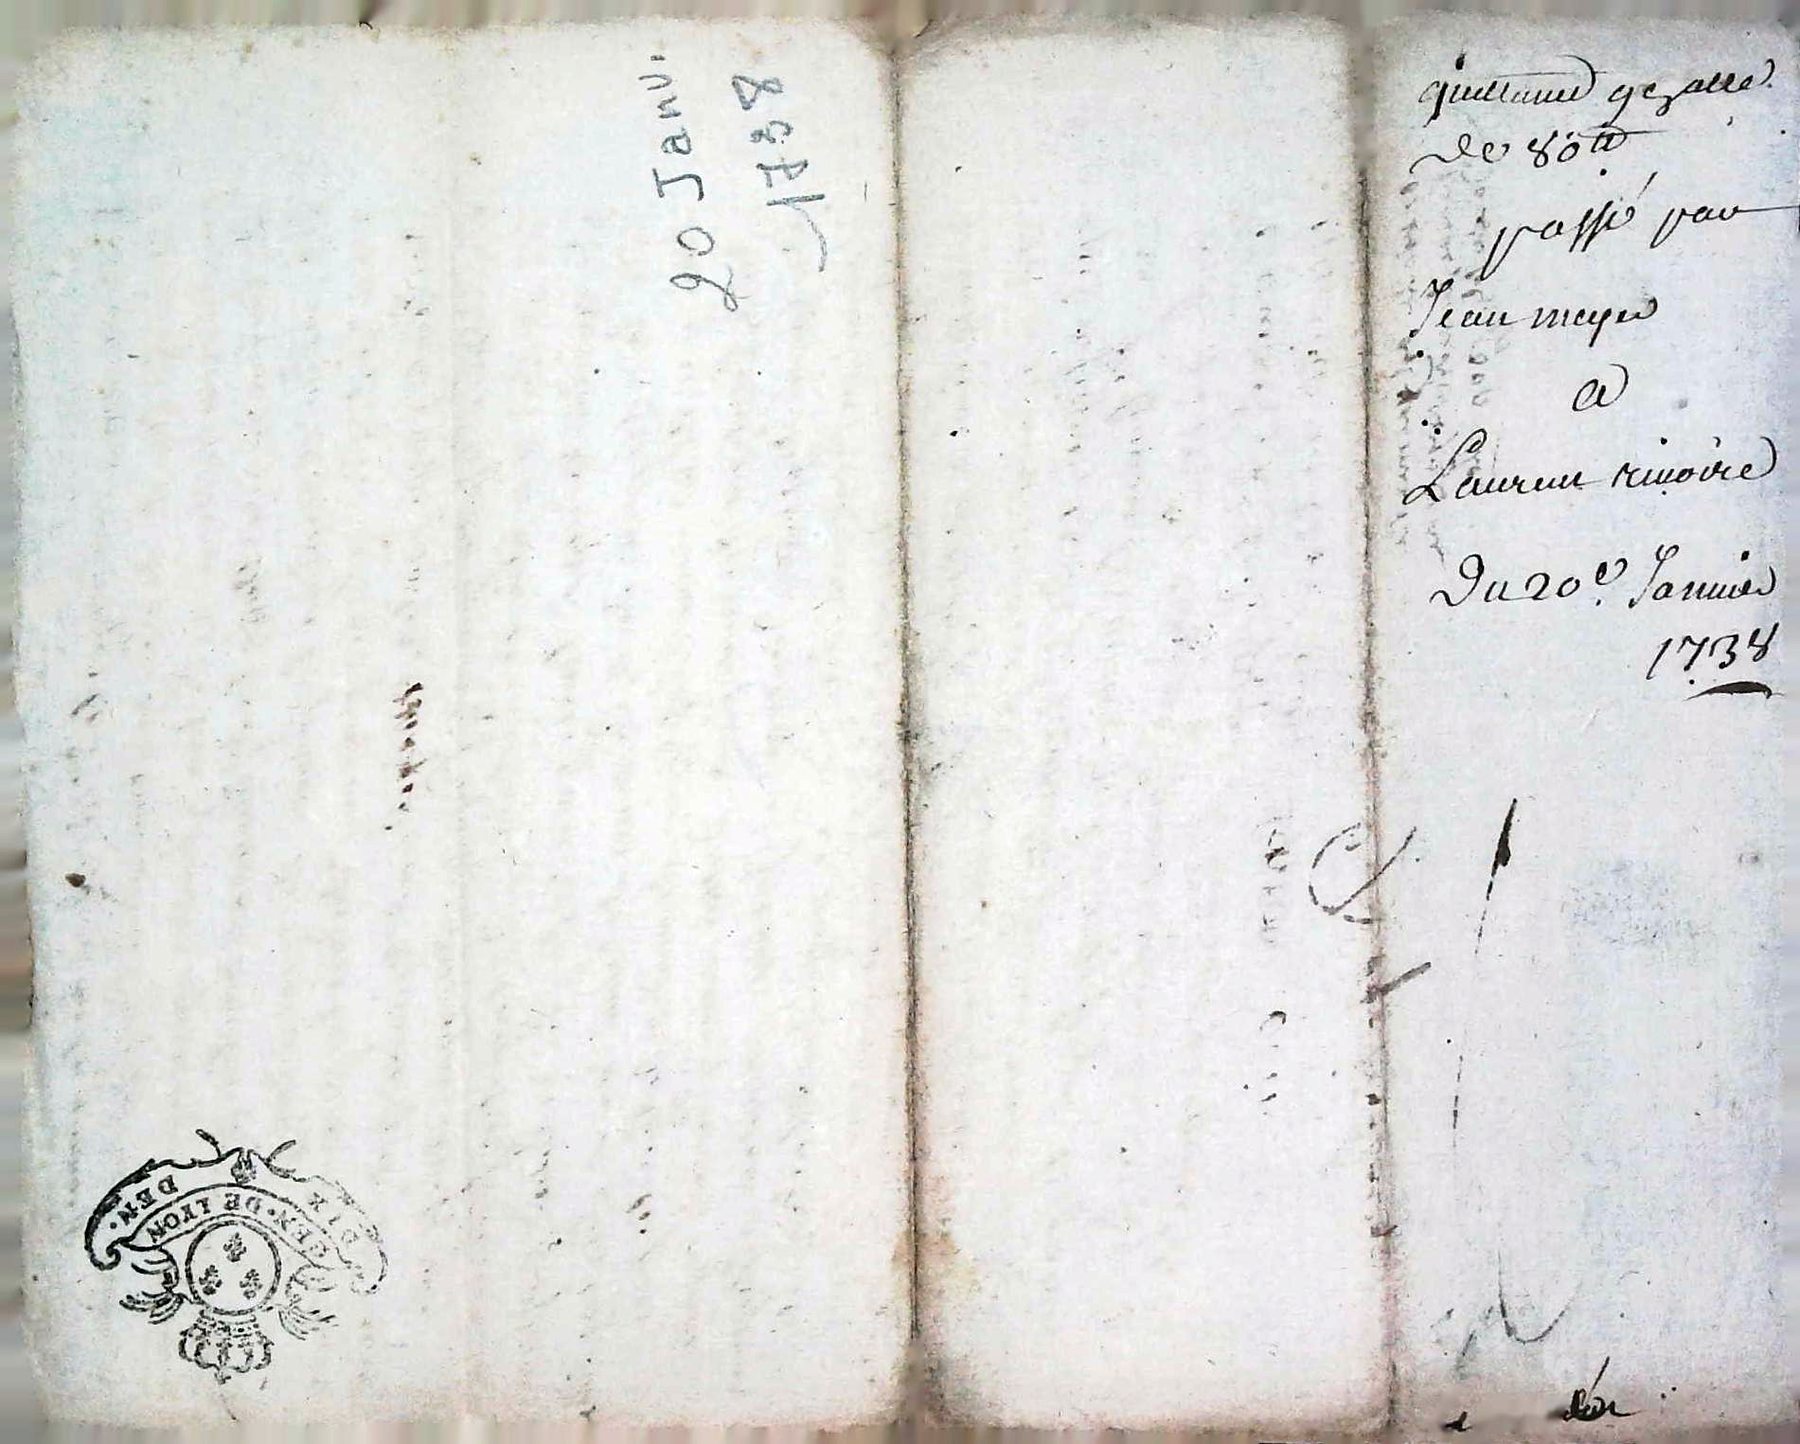 20 Janv.
1738
quittance g̃eralle
de 80tt
passé par
Jean mayer
a
Laurent rivoire
Du 20e. Janvier
1738
GEN. DE LYON
DIX DEN.